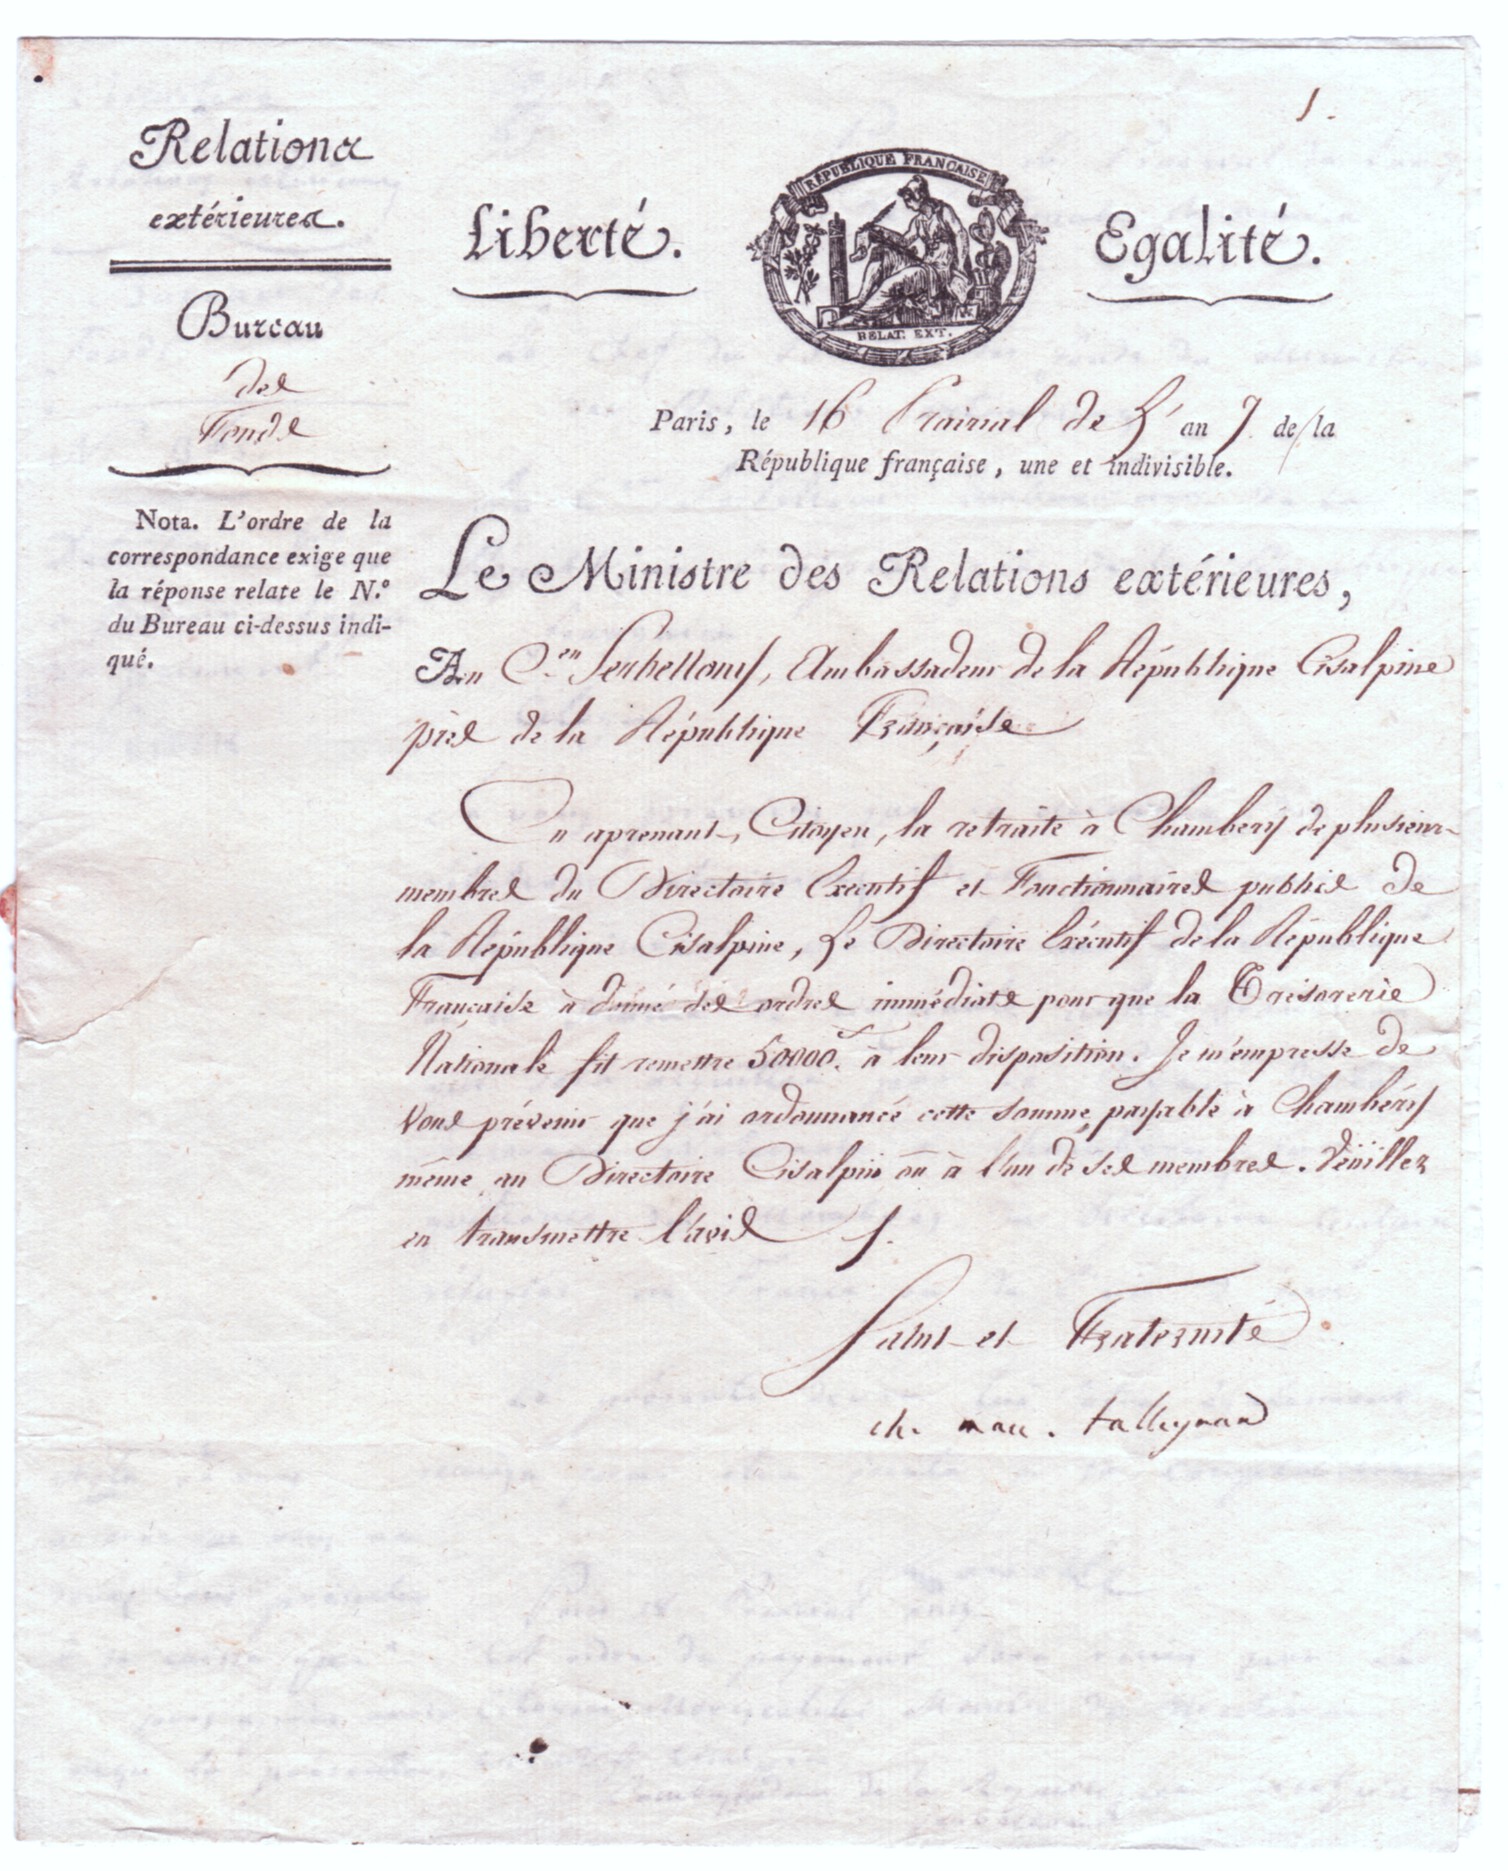 1.
Relations
extérieures.
Bureau
des
Fonds
Nota. L'ordre de la
correspondance exige que
la réponse relate le N.º
du Bureau ci-dessus indi-
qué.
Liberté.
RÉPUBLIQUE FRANÇAISE
RELAT. EXT.
Egalité.
Paris, le 16 Prairial de l'an 7. de la
République française, une et indivisible.
Le Ministre des Relations extérieures,
Au C.en Serbellony, Ambassadeur de la République Cisalpine
près de la République Française
En aprenant, Citoyen, la retraite à Chambery de plusieurs
membres du Directoire Executif et Fonctionnaires publics de
la République Cisalpine, Le Directoire Exécutif de la République
Française à donné des ordres immédiats pour que la Trésorerie
Nationale fit remettre 50000.f à leur disposition. Je m'empresse de
vous prévenir que j'ai ordonnancé cette somme, payable à Chambéry
même au Directoire Cisalpin ou à l'un de ses membres. Veuillez
en transmettre l'avis
Salut et Fraternité
ch. mau. talleyrand